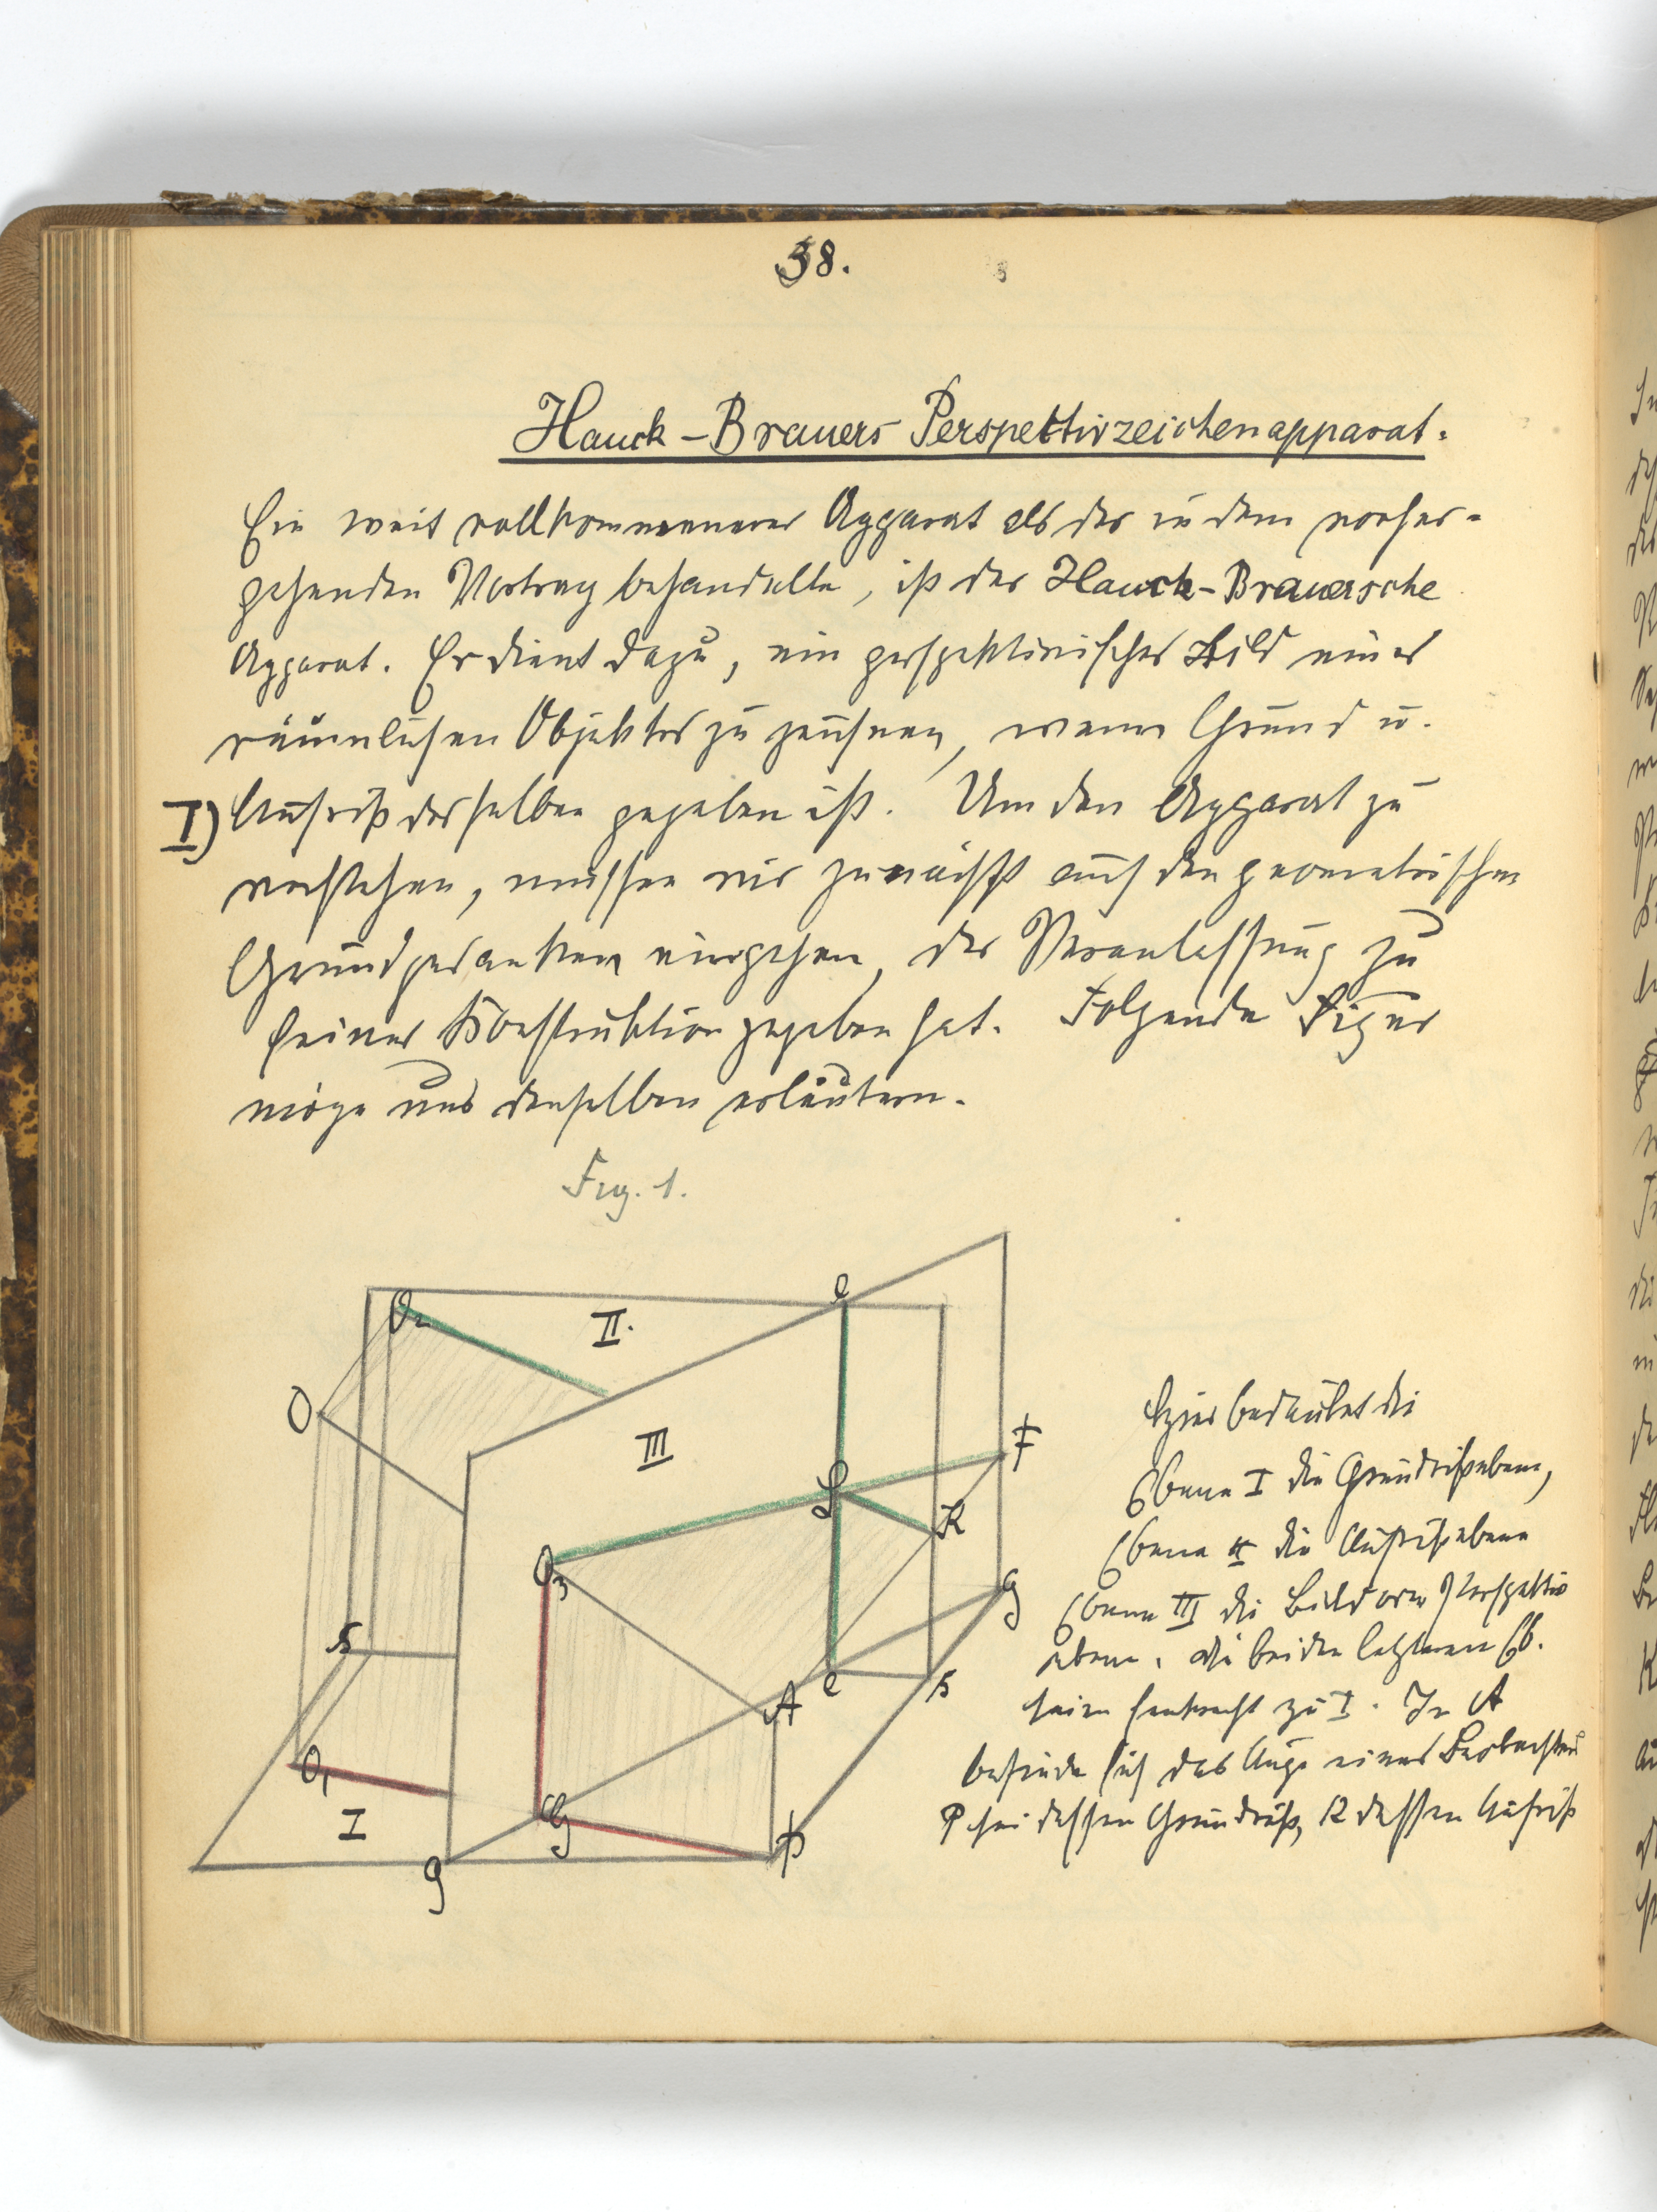 38.
Hauck-Brauers Perspektivzeichenapparat.
Ein weit vollkommenerer Apparat als der in dem vorher-
gehenden Vortrag behandelte, ist der Hauck-Brauersche
Apparat. Er dient dazu, ein perspektivisches Bild eines
räumlichen Objektes zu zeichnen, wenn Grund u.
I) Aufriß desselben gegeben ist. Um den Apparat zu
verstehen, müssen wir zunächst auf den geometrischen
Grundgedanken eingehen, der Veranlassung zu
seiner Konstruktion gegeben hat. Folgende Figur
möge uns denselben erläutern.
Fig. 1.
e
O2
II.
O
III
F
L
K
O3
g
A
e
O1
I
G
P
g
Hier bedeutet die
Ebene I die Grundrißebene,
Ebene II die Aufrißebene
Ebene III die Bild oder Perspektiv
ebene. die beiden letzteren Eb.
seien senkrecht zu I. In A
befinde sich das Auge eines Beobachters
P sei dessen Grundriß, K dessen Aufriß